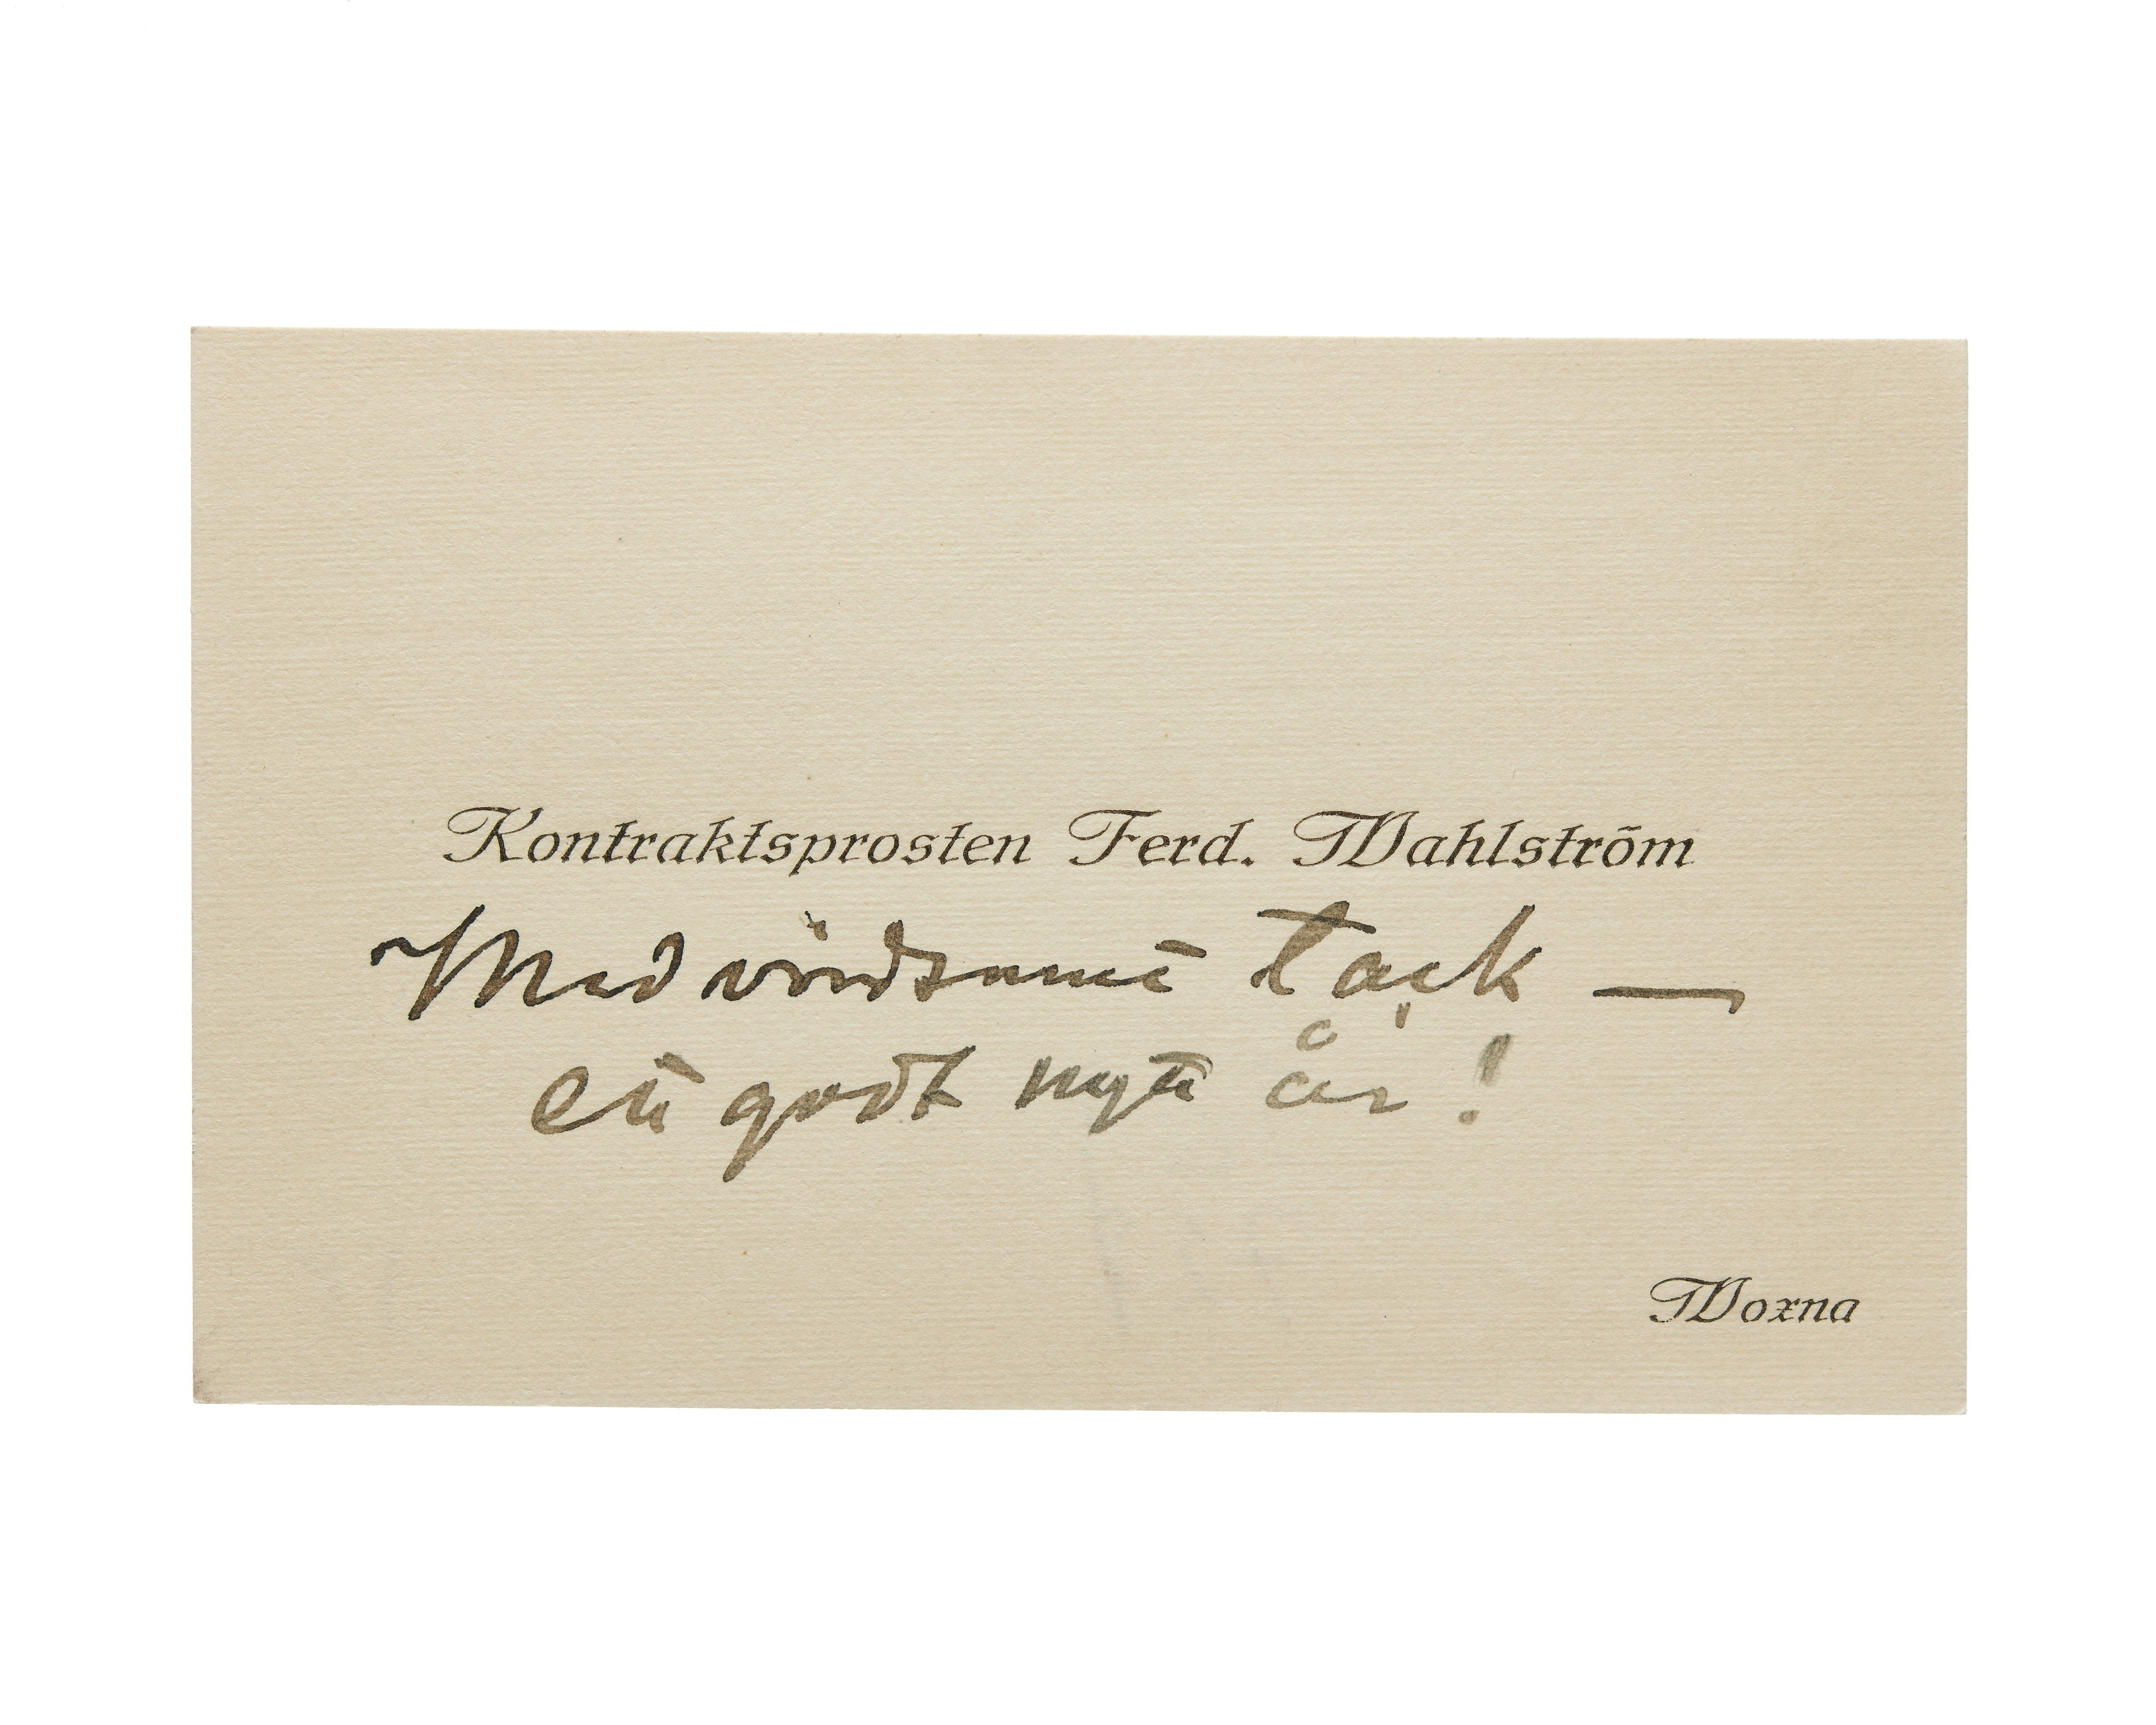 Kontraktsprosten Ferd. Wahlström
Med vördsamt tack —
ett godt nytt år!
Woxna